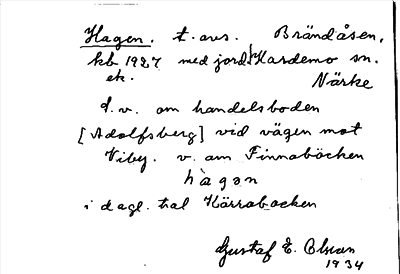 Hagen. t. avs. Brändåsen,
kb 1927 med jord Hardemo sn.
ek. Närke
S. v. om handelsboden
[Adolfsberg] vid vägen mot
Viby. v. om Finnabäcken
hàgan
i dagl. tal Kärrabacken
Gustaf E. Olsson
1934